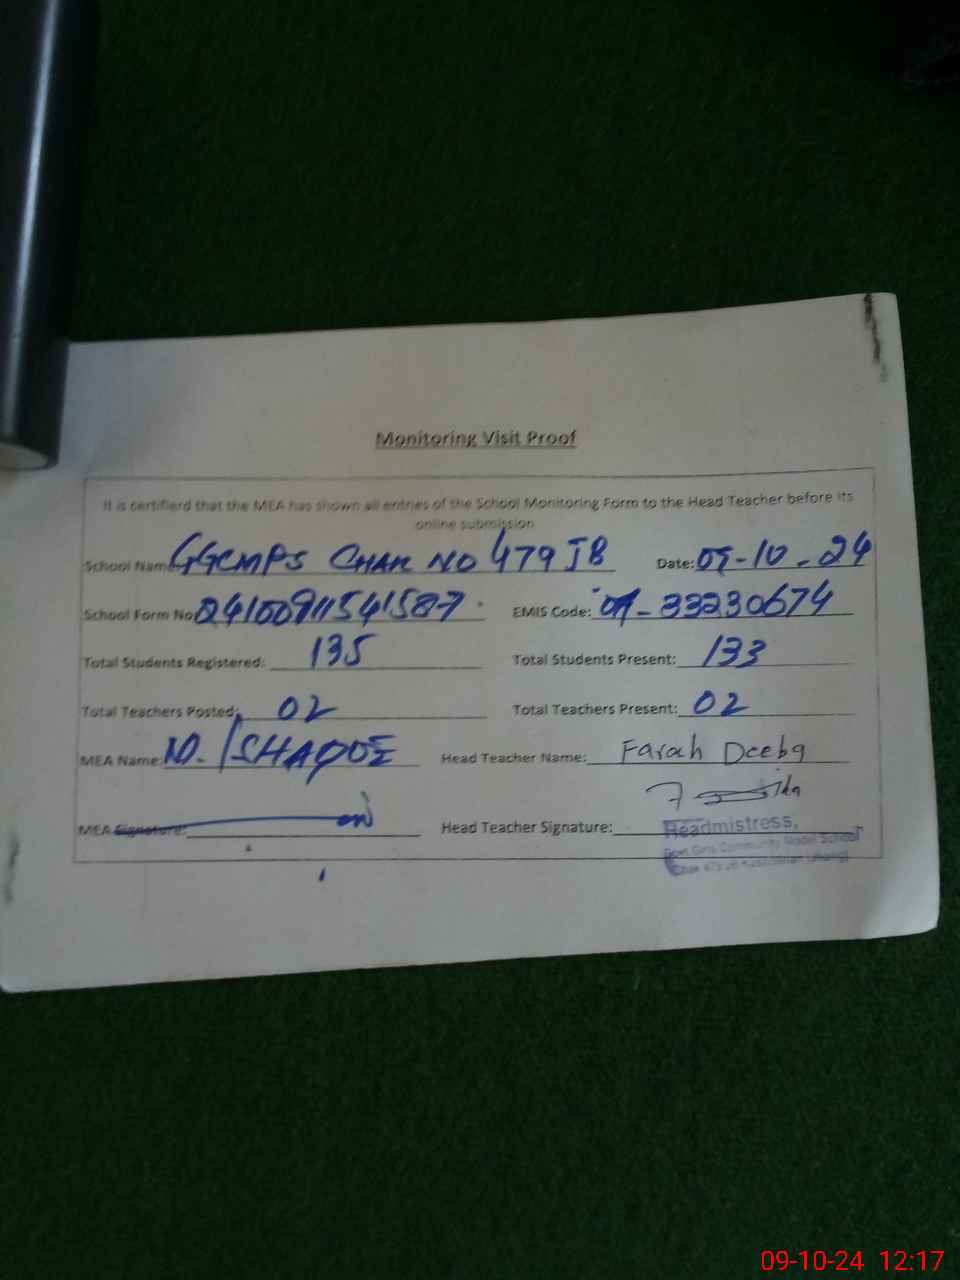 Monitoring Visit Proof
It is certifierd that the MEA has shown all entries of the School Monitoring Form to the Head Teacher before its
online submission
School Name: GGCMPS CHAK NO 479 JB Date: 09-10-24
School Form No: 02410091541587 EMIS Code: 33230674
Total Students Registered: 135 Total Students Present: 133
Total Teachers Posted: 02 Total Teachers Present: 02
MEA Name: M. ISHAQUE Head Teacher Name: Farah Deeba
MEA Signature: Head Teacher Signature:
Headmistress,
Govt Girls Community Model School
Chak 479 JB
09-10-24 12:17